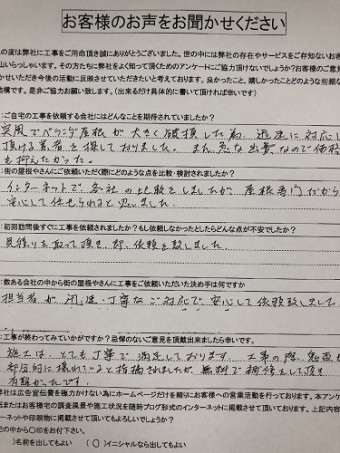 お客様のお声をお聞かせください
の度は弊社に工事をご用命頂き誠にありがとうございました。世の中には弊社の存在やサービスをご存知ないお客さ
山いらっしゃいます。その方たちに弊社をよく知って頂くためのアンケートにご協力頂けないでしょうか？お客様のご意見
かせいただき今後の活動に反映させていただきたいと考えております。良かったこと、嬉しかったことどのような些細な
結構です。是非ご協力お願い致します。（出来るだけ具体的に書いて頂ければ幸いです）
：ご自宅の工事を依頼する会社にはどんなことを期待されていましたか？
突風でベランダ屋根が大きく破損した為、迅速に対応し
頂ける業者を探しておりました。また、急な出費なので価格
も抑えたかった。
：街の屋根やさんにご依頼いただく際にどのような点を比較・検討されましたか？
インターネットで各社の比較をしましたが、屋根専門だから
安心して任せられると思いました。
：初回訪問後すぐに工事を依頼されましたか？もし依頼しなかったとしたらどんな点が不安でしたか？
見積りを取って頂き、即、依頼を致しました。
：数ある会社の中から街の屋根やさんに工事をご依頼いただいた決め手は何ですか
担当者が迅速・丁寧なご対応で、安心して依頼致しました
：工事が終わってみていかがですか？忌憚のないご意見を頂戴出来ましたら幸いです。
施工は、とても丁寧で満足しております。工事の際、
部分的に壊れていると指摘されましたが、無料で補修をして頂き
有難かったです。
弊社は広告宣伝費を極力かけない為にホームページだけを頼りにお客様への営業活動を行っております。本アンケ
またはお客様宅の調査風景や施工状況を随時ブログ形式のインターネットに掲載させて頂いております。上記内容
ーネットや印刷物に掲載させて頂いてもよろしいでしょうか？
の中から〇印をお付下さい。
）名前を出してもよい （〇）イニシャルなら出してもよい